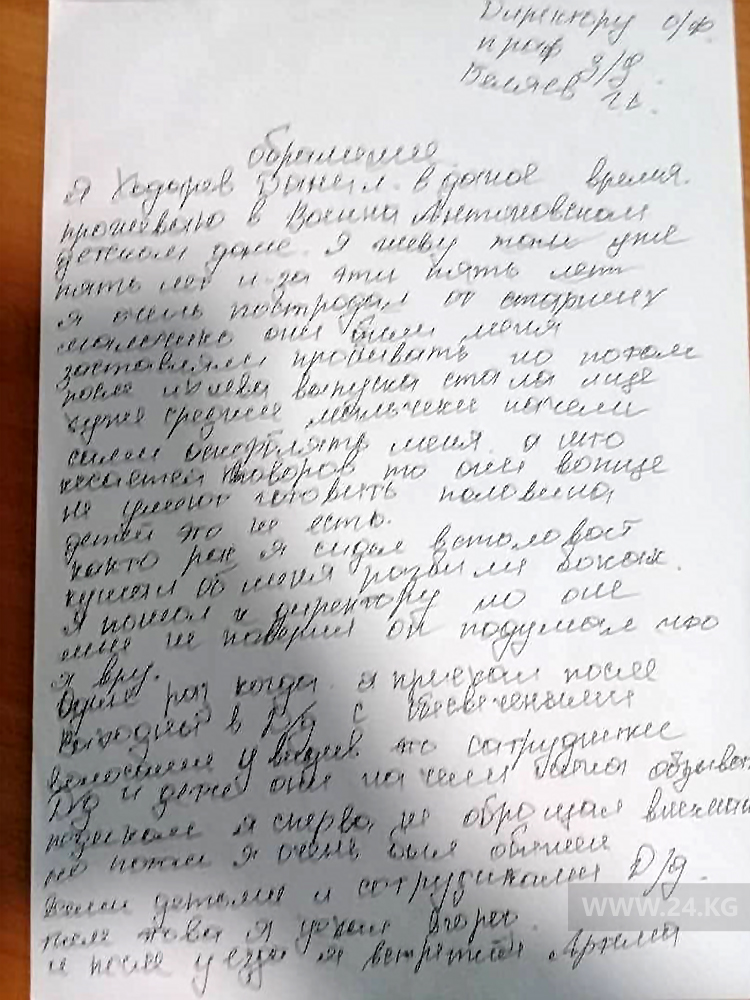 Директору о/ф.
проф З/Д.
Беляев
обрашение
я Ходырев Данел. в даное время.
прожеваю в Воена Антоновском
детском доме. Я жеву там уже
пять лет и за эти пять лет
я очень пострадал от старшех
мальчеко они били меня
заставляли просывать но потом
после их выпуска стала
хуже среднее мальчеки начели
меня. а што
касается поворов то они вопще
не умеют готовить половена
детей это не есть.
както раз я сидел встоловаст
кушал об меня розбили бокаж.
Я пошол к деректору но он
мне не поверил он подумал что
я вру.
Один раз когда я приехал после
выходных в Д/Д с
волосами увидев это сотруднике
ДД и дете оне начели обзыват
я сперва не оброщал внеман
но потом я очень был обижен
всеми детьми и сотрудиками Д/Д.
после това я
и после уезда я встретел
WWW.24.KG